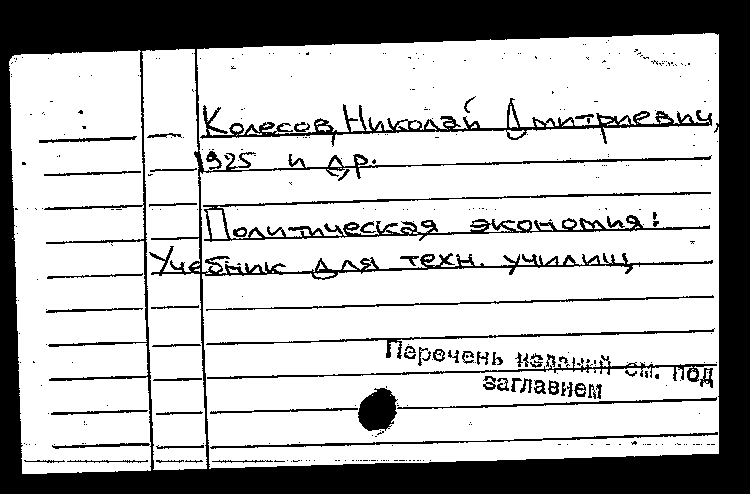 Колесов, Николай Дмитриевич,
1925 и др.
Политическая экономия:
Учебник для техн. училищ
Перечень изданий см. под
заглавием